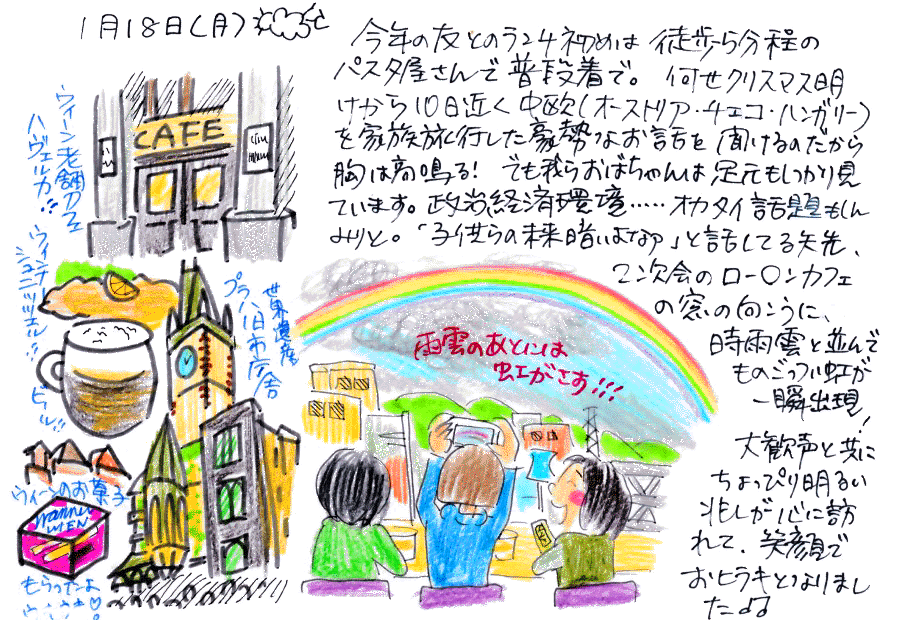 1月18日(月)
今年の友とのランチ初めは 徒歩5分程の
パスタ屋さんで普段着で。何せクリスマス明
けから10日近く中欧(オーストリア・チェコ・ハンガリー)
を家族旅行した豪勢なお話を聞けるのだから
胸は高鳴る! でも我らおばちゃんは足元もしっかり見
ています。政治経済環境……オカタイ話題もしん
みりと。「子供らの未来暗いよなぁ」と話してる矢先、
2次会のロー〇ンカフェ
の窓の向こうに、
時雨雲と並んで
ものごっつい虹が
一瞬出現!
大歓声と共に
ちょっぴり明るい
兆しが心に訪
れて、笑顔で
おヒラキとなりまし
た♫
ウィーン老舗カフェ
ハヴェルカ!!
CAFE
ウィンナーシュニッツェル!!
ビール!!
世界遺産
プラハ旧市庁舎
ウィーンのお菓子
manner
WIEN
もらったよ
雨雲のあとには
虹がさす!!!